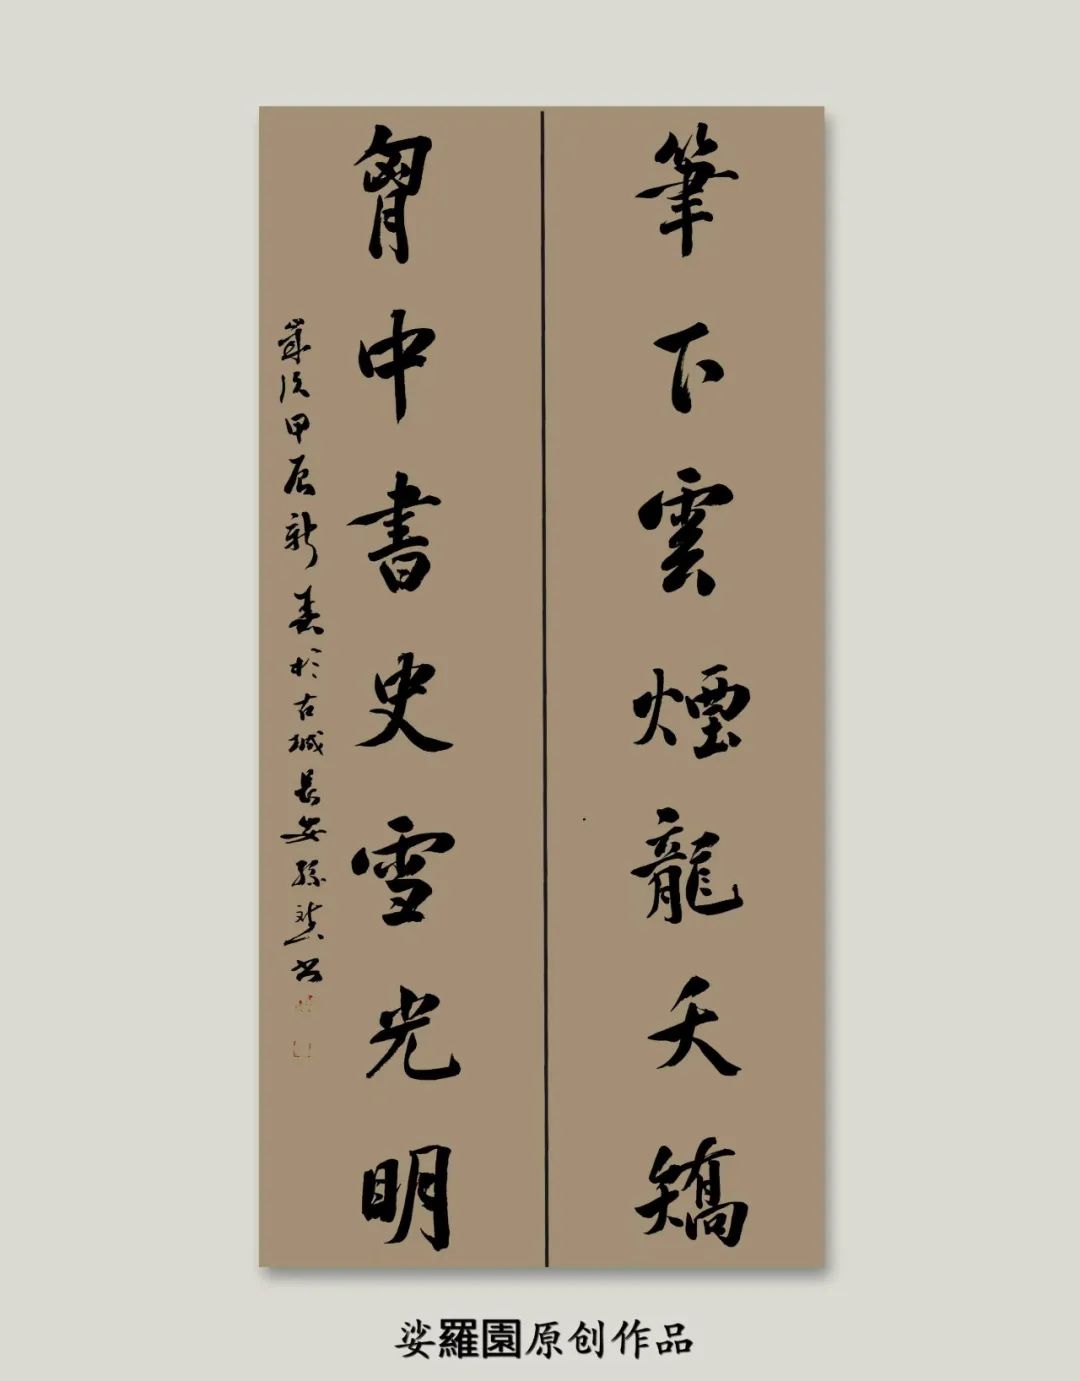 筆下雲煙龍夭矯
胷中書史雪光明
歲次甲辰新春於古城長安孫
娑羅園原创作品